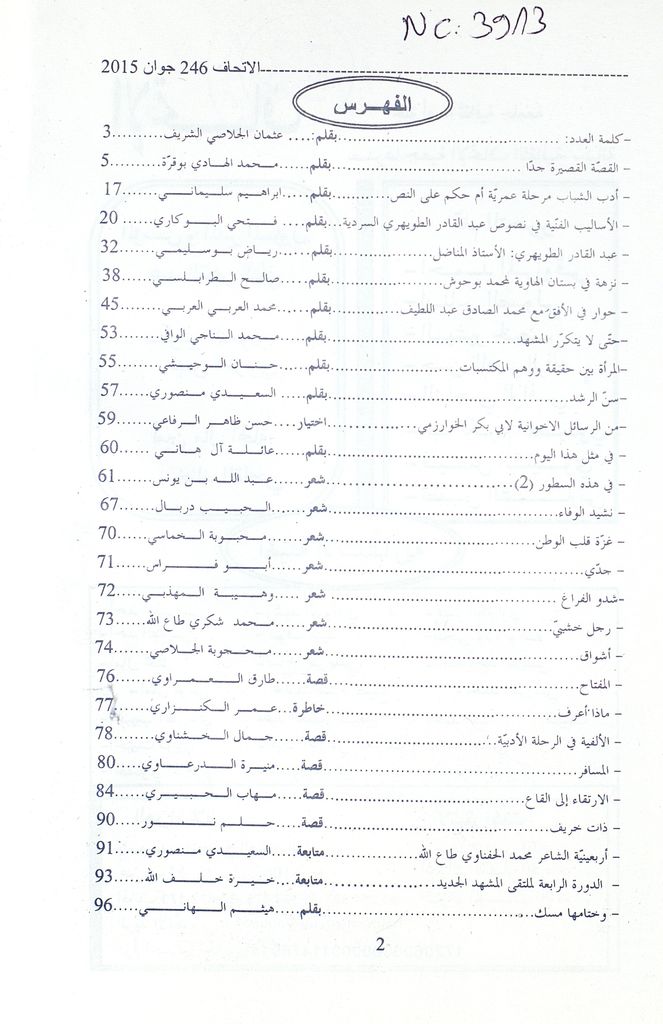 NC: 3913
الاتحاف 246 جوان 2015
الفهرس
-كلمة العدد: ........بقلم:.... عثمان الجلاصي الشريف.........3
- القصّة القصيرة جدّا ........بقلم.....محمد الهادي بوقرّة.........5
- أدب الشباب مرحلة عمريّة أم حكم على النص........بقلم.....ابراهيم سليماني.......17
- الأساليب الفنّية في نصوص عبد القادر الطويهري السردية...بقلم.... فتحي البوكاري......20
- عبد القادر الطويهري: الأستاذ المناضل........بقلم.....رياض بوسليمي.......32
- نزهة في بستان الهاوية لمحمد بوحوش........بقلم.....صالح الطرابلسي.......38
- حوار في الأفق مع محمد الصادق عبد اللطيف........بقلم..... محمد العربي العربي.......45
-حتّى لا يتكرّر المشهد........بقلم.....محمد الناجي الوافي.......53
-المرأة بين حقيقة ووهم المكتسبات........بقلم.....حنان الوحيشي.......55
-سنّ الرشد........بقلم.... السعيدي منصوري.......57
-من الرسائل الاخوانية لابي بكر الخوارزمي........اختيار....حسن ظاهر الرفاعي.......59
- في مثل هذا اليوم........بقلم.....عائلة آل هاني ......60
- في هذه السطور (2)........شعر......عبد الله بن يونس.......61
- نشيد الوفاء........شعر......الحبيب دربال.......67
- غزّة قلب الوطن........شعر......محبوبة الخماسي.......70
- جدّي........شعر......أبو فراس.......71
-شدو الفراغ ........شعر .....وهيبة المهذبي.......72
- رجل خشبيّ........شعر......محمد شكري طاع الله.......73
- أشواق........شعر......محجوبة الجلاصي.......74
- المفتاح........قصة.....طارق العمراوي.......76
- ماذا أعرف........خاطرة...عمر الكنزاري.......77
- الألفية في الرحلة الأدبيّة........قصة......جمال الخشناوي.......78
- المسافر........قصة.....منيرة الدرعاوي.......80
- الارتقاء إلى القاع........قصة.....مهاب الحبيري.......84
- ذات خريف........قصة......حلم نور.......90
- أربعينيّة الشاعر محمد الحفناوي طاع الله........متابعة....السعيدي منصوري.......91
- الدورة الرابعة للملتقى المشهد الجديد........متابعة....خيرة خلف الله.......93
- وختامها مسك........بقلم.....هيثم الهاني.......96
2